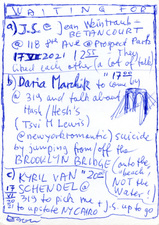 WAITING FOR
a) J.S. @ Jean Weintraub-
BETANCOURT
@ 118 4th Ave @ Prospect Park
17 VII 2021 | 25 | They
liked each other (a lot of talk)
b) Daria Marchik to come
@ 319 and talk about
Hash / Hesh's
(Tsvi M Lewis)
@newyorkromantic) suicide
by jumping from/off the
BROOKLYN BRIDGE
(onto the beach,
NOT the Water!)
c) KYRIL VAN
SCHENDEL @
319 to pick me + J.S. up to go
to upstate NYC